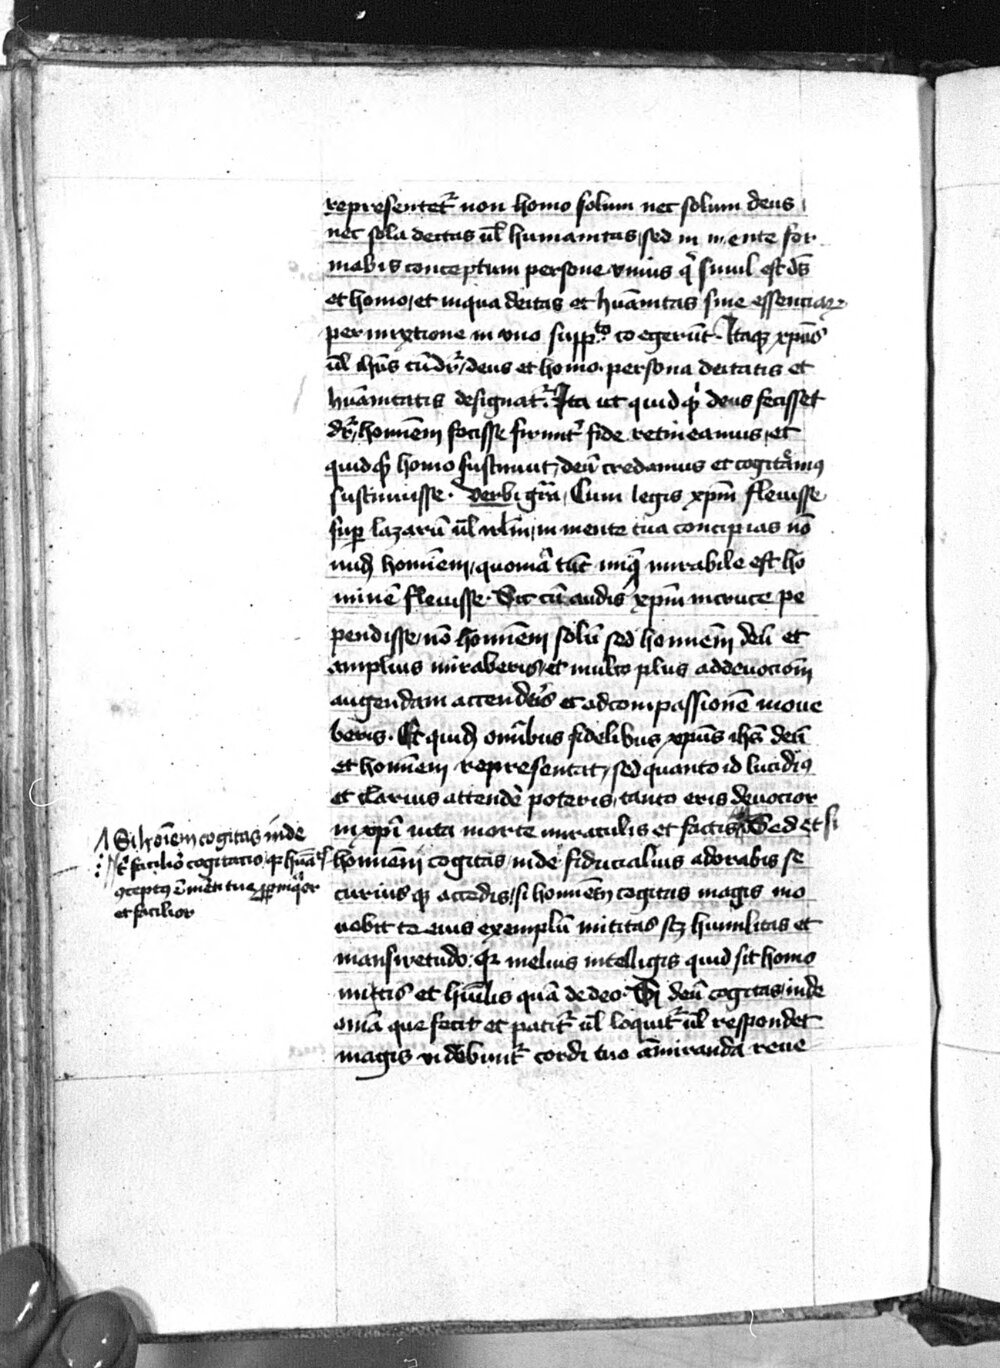 representet᷑ non homo solum nec solum deus
nec sola deitas ul̄ humanitas sed in mente for
mabis conceptum persone unius q̄ simul est ds̄
et homo, et in qua deitas et hūanitas sine essenciaꝝ
permixtione in uno supp.to coegerūt. Itaqꝫ xp̄us
ul̄ ih̄us cū dr̄, deus et homo. persona deitatis et
hūanitatis designat᷑. Ita ut quidqͥd deus fecisset
dr̄, hominem̄ fecisse firmit᷑ fide retineamus, et
quidqͥd homo sustinuit, deū credamus et cogitamꝰ
sustinuisse. verbi gr̄a, Cum legis xp̄m flevisse
suꝑ lazarū ul̄ irl̄m, in mente tua concipias nō
nudū hominem̄, quoniā tūc mirabile est ho
minē flevisse. Sic cū audis xp̄m in cruce pe
pendisse, nō hominem̄ solū sed hominem̄ deū et
amplius miraberis, et multo plus ad devociom̄
augendam accenderis et ad compassionē move
beris. Et quidē omībus fidelibus xp̄us ih̄s deū
et hominem̄ representat, sed quanto id lucidiꝰ
et clarius attendē poteris, tanto eris devocior
in xp̄i vita morte miraculis et factis Sed et si
hominem̄ cogitas, inde fiducialius adorabis se
curiusqꝫ accedis, si hominem̄ cogitas magis mo
vebit te eius exemplū mititas scꝫ humilitas et
mansuetudo. qꝛ melius intelligis quid sit homo
mitis et hūilis quā de deo. Si deū cogitas, inde
om̄ia que fecit et patit᷑ ul̄ loquit᷑ ul̄ respondet
magis videbunt᷑ cordi tuo am̄iranda reve
Si hoīem cogitas inde
facilior cogitacio, qꝛ hūan
9ceptꝰ ē menti tue ꝓpinqͥor
et facilior